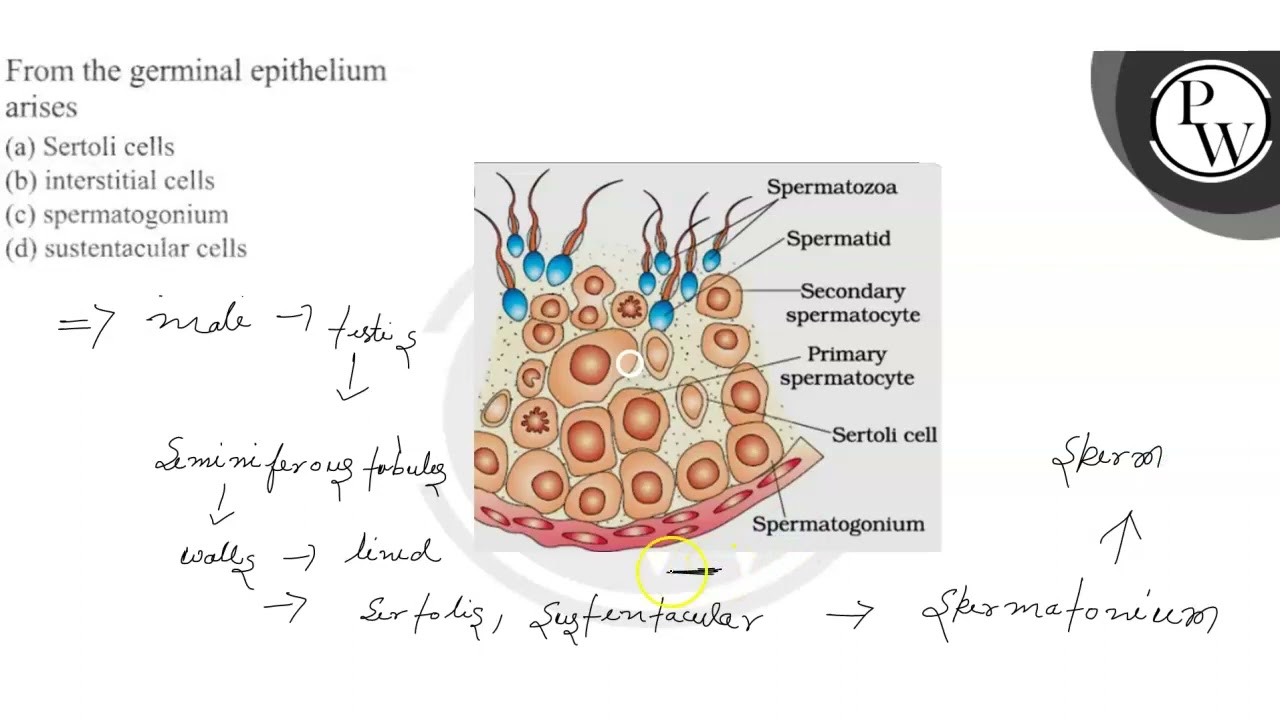 From the germinal epithelium
arises
(a) Sertoli cells
(b) interstitial cells
(c) spermatogonium
(d) sustentacular cells
PW
Spermatozoa
Spermatid
Secondary
spermatocyte
Primary
spermatocyte
Sertoli cell
Spermatogonium
=> male → testis
Seminiferous tubules
walls → lined
→ Sertolis, Sustentacular → Spermatonium
Sperm